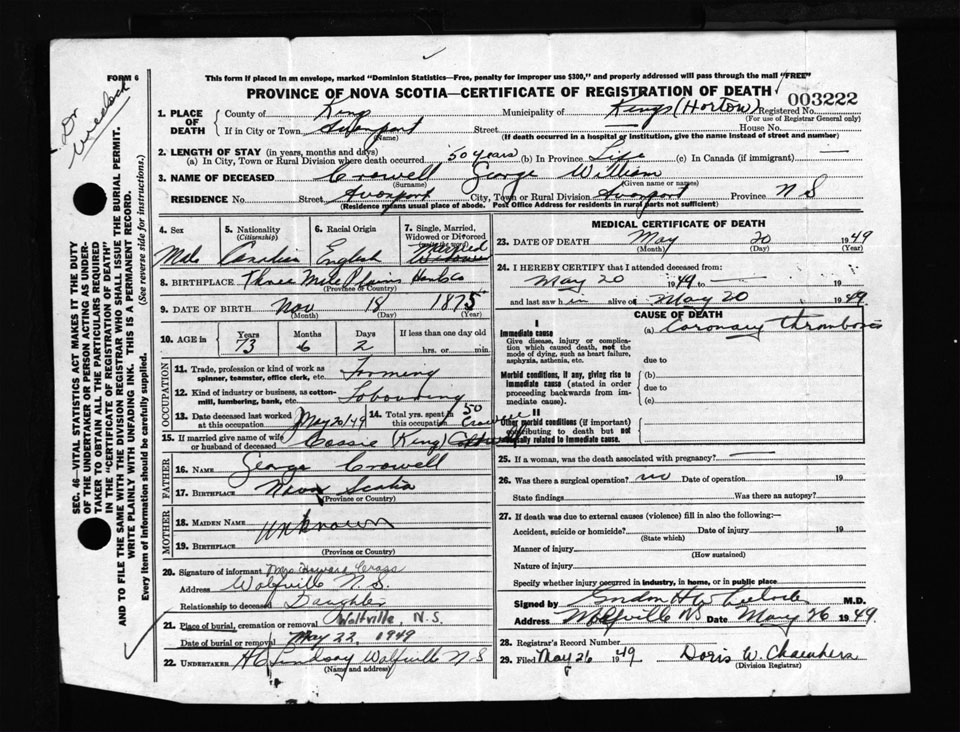 FORM 6
Dr
Wheelock
SEC. 46—VITAL STATISTICS ACT MAKES IT THE DUTY
OF THE UNDERTAKER OR PERSON ACTING AS UNDER-
TAKER TO OBTAIN ALL THE PARTICULARS REQUIRED
IN THE "CERTIFICATE OF REGISTRATION OF DEATH"
AND TO FILE THE SAME WITH THE DIVISION REGISTRAR WHO SHALL ISSUE THE BURIAL PERMIT.
WRITE PLAINLY WITH UNFADING INK. THIS IS A PERMANENT RECORD.
Every item of information should be carefully supplied. (See reverse side for instructions.)
This form if placed in an envelope, marked "Dominion Statistics—Free, penalty for improper use $300," and properly addressed will pass through the mail "FREE"
PROVINCE OF NOVA SCOTIA—CERTIFICATE OF REGISTRATION OF DEATH
003222
1. PLACE OF DEATH County of King Municipality of Kings (Horton) Registered No.
(For use of Registrar General only)
If in City or Town Avonport Street House No.
(Name) (If death occurred in a hospital or institution, give the name instead of street and number)
2. LENGTH OF STAY (in years, months and days)
(a) In City, Town or Rural Division where death occurred 50 years (b) In Province Life (c) In Canada (if immigrant) —
3. NAME OF DECEASED Crowell George William
(Surname) (Given name or names)
RESIDENCE No. Street Avonport City, Town or Rural Division Avonport Province N S
(Residence means usual place of abode. Post Office Address for residents in rural parts not sufficient)
4. Sex 5. Nationality (Citizenship) 6. Racial Origin 7. Single, Married, Widowed or Divorced
Male Canadian English Married Widower
8. BIRTHPLACE Three Mile Plains Hants Co
(Province or Country)
9. DATE OF BIRTH Nov 18 1875
(Month) (Day) (Year)
10. AGE in Years Months Days If less than one day old
73 6 2 hrs. or min.
OCCUPATION
11. Trade, profession or kind of work as spinner, teamster, office clerk, etc. Farming
12. Kind of industry or business, as cotton-mill, lumbering, bank, etc. Labouring
13. Date deceased last worked at this occupation May 20/49 14. Total yrs. spent in this occupation 50
15. If married give name of wife or husband of deceased Cassie (King) Crowell
FATHER
16. NAME George Crowell
17. BIRTHPLACE Nova Scotia
(Province or Country)
MOTHER
18. MAIDEN NAME Unknown
19. BIRTHPLACE
(Province or Country)
20. Signature of informant Mrs Howard Cragg
Address Wolfville N.S.
Relationship to deceased Daughter
21. Place of burial, cremation or removal Wolfville, N.S.
Date of burial or removal May 22, 1949
22. UNDERTAKER H C Lindsay Wolfville N S
(Name and address)
MEDICAL CERTIFICATE OF DEATH
23. DATE OF DEATH May 20 1949
(Month) (Day) (Year)
24. I HEREBY CERTIFY that I attended deceased from:
May 20 1949 to — 19
and last saw h im alive on May 20 1949.
CAUSE OF DEATH
I
Immediate cause (a) Coronary thrombosis
Give disease, injury or complication which caused death, not the mode of dying, such as heart failure, asphyxia, asthenia, etc.
due to
Morbid conditions, if any, giving rise to immediate cause (stated in order proceeding backwards from immediate cause).
(b)
due to
(c)
II
Other morbid conditions (if important) contributing to death but not causally related to immediate cause.
25. If a woman, was the death associated with pregnancy? —
26. Was there a surgical operation? no Date of operation 19
State findings Was there an autopsy?
27. If death was due to external causes (violence) fill in also the following:—
Accident, suicide or homicide? Date of injury 19
(State which)
Manner of injury
(How sustained)
Nature of injury
Specify whether injury occurred in industry, in home, or in public place
Signed by Gordon H Wheelock M.D.
Address Wolfville NS Date May 26 1949
28. Registrar's Record Number
29. Filed May 26 1949 Doris W. Chambers
(Division Registrar)